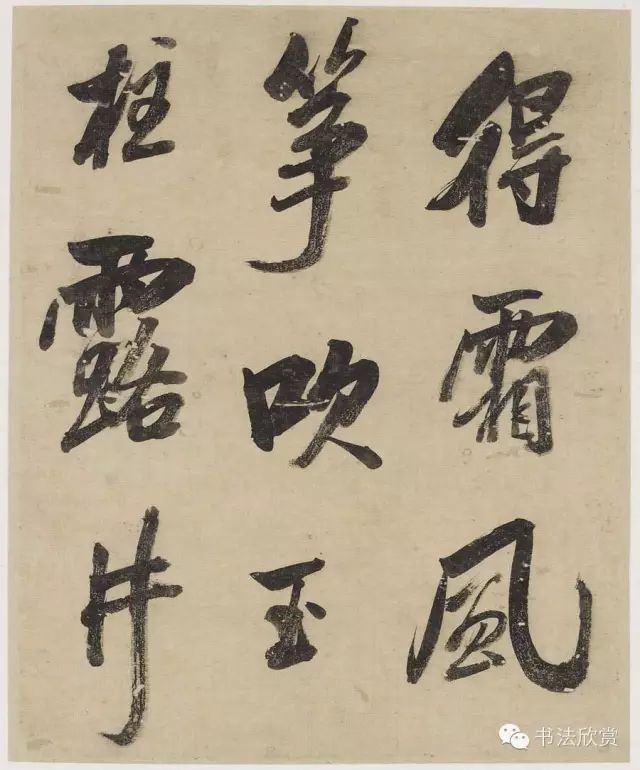 得霜风
筝吹玉
柱露井
书法欣赏